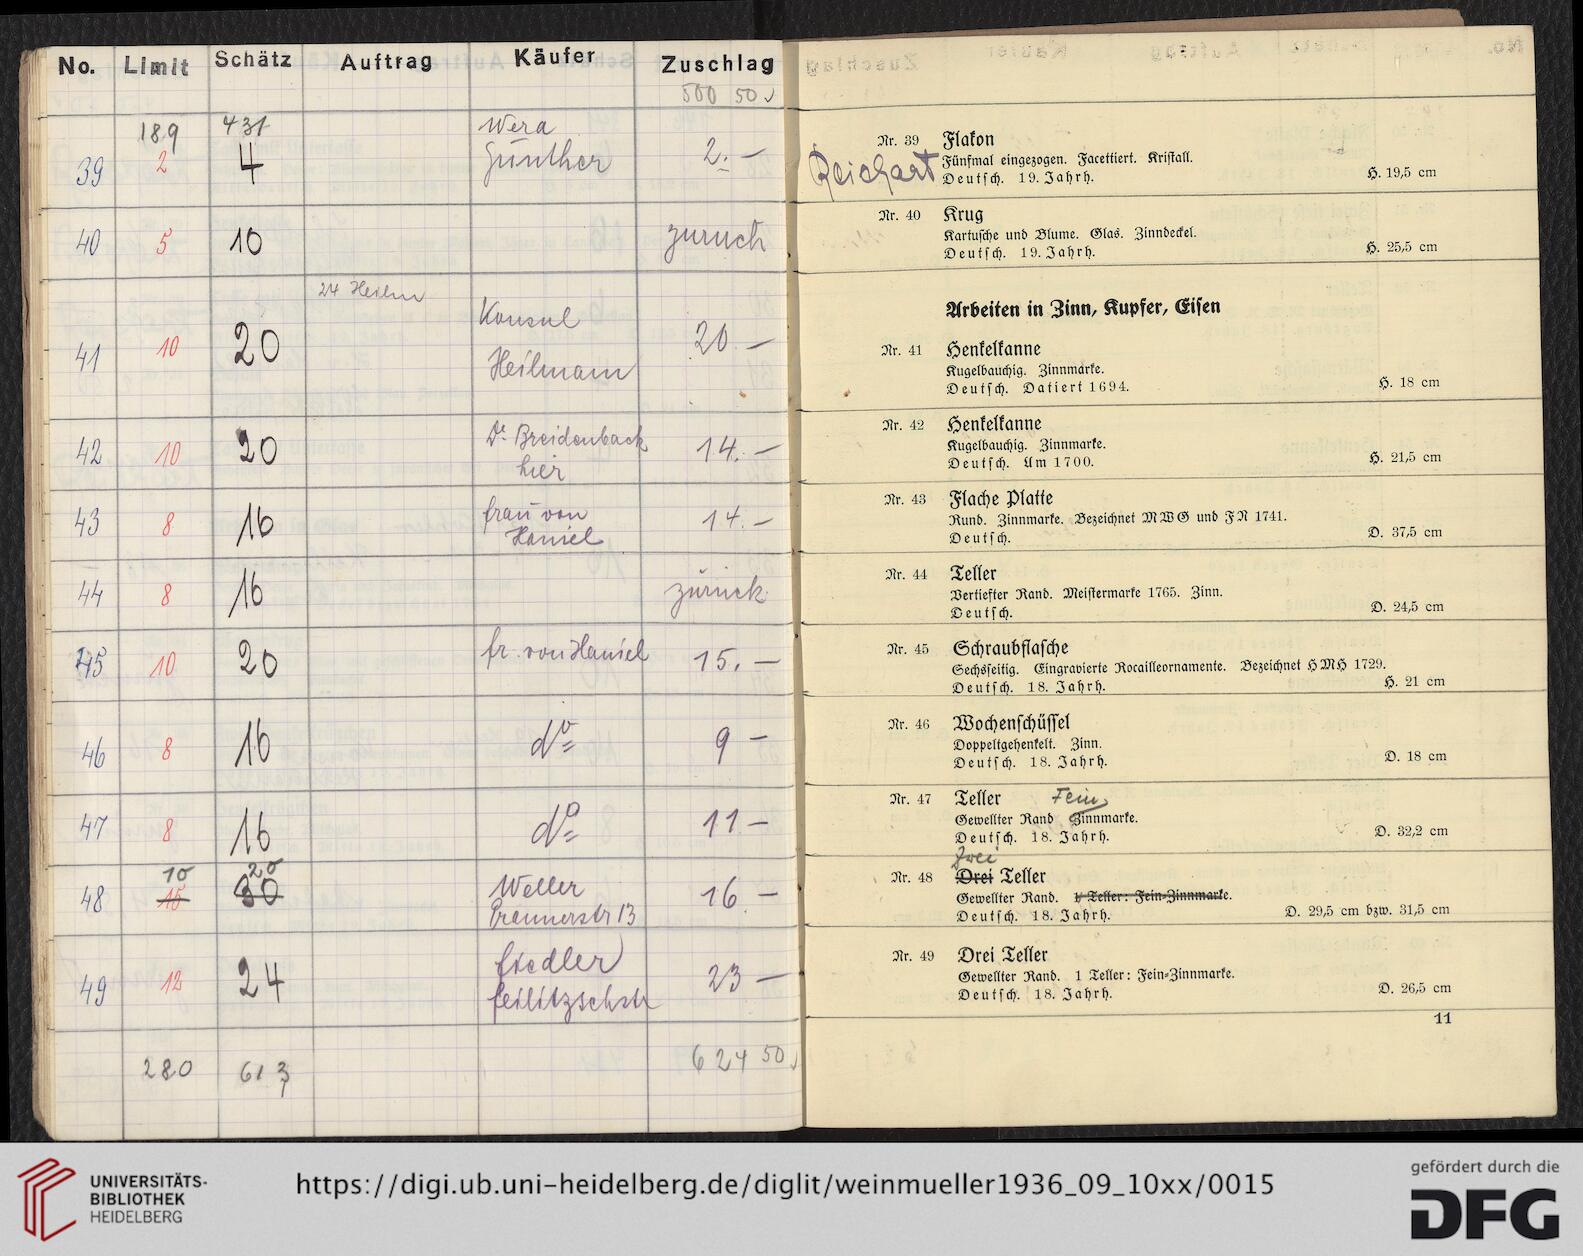 No. Limit Schätz Auftrag Käufer Zuschlag
500 50
189 431
39 2 4 Wera Günther 2.–
40 5 10 zurück
24 Heilm
41 10 20 Konsul Heilmann 20 –
42 10 20 Dr. Breidenbach hier 14.–
43 8 16 Frau von Haniel 14.–
44 8 16 zurück
45 10 20 fr. von Haniel 15.–
46 8 16 do 9 –
47 8 16 do 11 –
10 20
48 15 30 Weller Prannerstr 13 16 –
49 12 24 Fiedler Feilitzschstr 23 –
280 613 624 50
Reichart
Nr. 39 Flakon
Fünfmal eingezogen. Facettiert. Kristall.
Deutsch. 19. Jahrh. H. 19,5 cm
Nr. 40 Krug
Kartusche und Blume. Glas. Zinndeckel.
Deutsch. 19. Jahrh. H. 25,5 cm
Arbeiten in Zinn, Kupfer, Eisen
Nr. 41 Henkelkanne
Kugelbauchig. Zinnmarke.
Deutsch. Datiert 1694. H. 18 cm
Nr. 42 Henkelkanne
Kugelbauchig. Zinnmarke.
Deutsch. Um 1700. H. 21,5 cm
Nr. 43 Flache Platte
Rund. Zinnmarke. Bezeichnet MWG und FN 1741.
Deutsch. D. 37,5 cm
Nr. 44 Teller
Vertiefter Rand. Meistermarke 1765. Zinn.
Deutsch. D. 24,5 cm
Nr. 45 Schraubflasche
Sechsseitig. Eingravierte Rocailleornamente. Bezeichnet HMH 1729.
Deutsch. 18. Jahrh. H. 21 cm
Nr. 46 Wochenschüssel
Doppeltgehenkelt. Zinn.
Deutsch. 18. Jahrh. D. 18 cm
Nr. 47 Teller Fein
Gewellter Rand Zinnmarke.
Deutsch. 18. Jahrh. D. 32,2 cm
Zwei
Nr. 48 Drei Teller
Gewellter Rand. 1 Teller: Fein-Zinnmarke.
Deutsch. 18. Jahrh. D. 29,5 cm bzw. 31,5 cm
Nr. 49 Drei Teller
Gewellter Rand. 1 Teller: Fein-Zinnmarke.
Deutsch. 18. Jahrh. D. 26,5 cm
11
UNIVERSITÄTS-
BIBLIOTHEK
HEIDELBERG
https://digi.ub.uni-heidelberg.de/diglit/weinmueller1936_09_10xx/0015
gefördert durch die
DFG